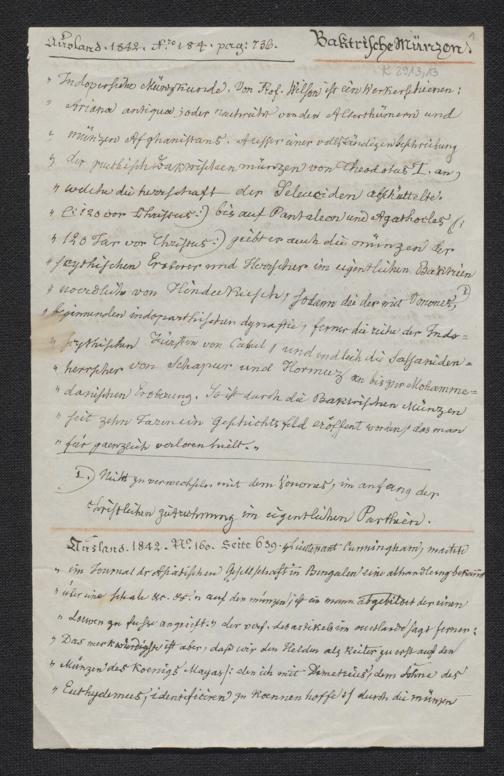 Ausland. 1842. Nro 184. pag: 736. Baktrische Münzen. 1
K 2913,13
" Indopersische Münzkunde. Von Prof. Wilson ist ein Werk erschienen:
" Ariana antiqua; oder nachricht von den Alterthümern und
" münzen Afghanistans. Ausser einer vollständigen beschreibung
" der Baktrischen münzen von Theodotus I. an,
" welche die herrschaft der Seleuciden abschüttelte.
" (: 120 vor Christus:) bis auf Pantaleon und Agathocles (:
" 120 Jar vor Christus:) giebt er auch die münzen der
" scythischen Eroberer und Herrscher im eigentlichen Baktrien
" noerdlich von Hinduckusch, sodann die der mit Vonones, 1)
" beginnenden indoparthischen dynastie, ferner die reihe der Indo=
" scythischen Fürsten von Cabul, und endlich die Sassaniden=
" herrscher von Schapur und Hormuz an bis zur Mohamme=
" danischen Eroberung. So ist durch die Baktrischen Münzen
" seit zehn Jaren ein Geschichtsfeld eröffnet worden, das man
" für gaenzlich verloren hielt. "
1.) Nicht zu verwechseln mit dem Vonones, im anfang der
christlichen zeitrechnung im eigentlichen Parthien.
Ausland. 1842. No. 160. Seite 639. Lieutenant Cunningham, machte
" im Journal der Asiatischen Gesellschaft in Bengalen eine abhandlung bekannt
" über eine schale &c. &c. auf den münzen, ist ein mann abgebildet der einen
" Loewen zu fusse angreift. " der verf. des artikels im auslande sagt ferner:
" Das merkwürdigste ist aber, dass wir den Helden als Reiter zu erst auf den
" Münzen des Koenigs Mayas (: den ich mit Demetrius, dem Sohne des
" Euthydemus, identificiren zu koennen hoffe :) durch die münzen